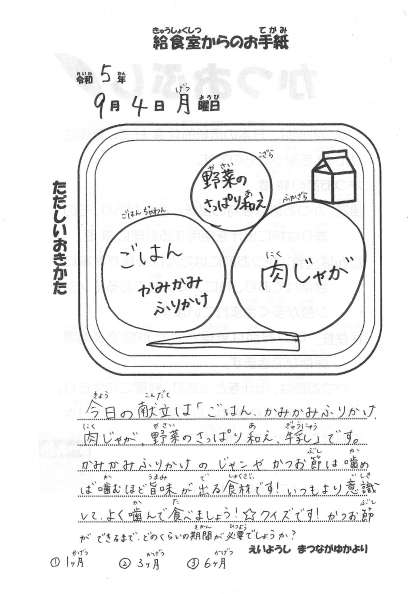 給食室からのお手紙
令和5年
9月4日月曜日
ただしいおきかた
野菜の
さっぱり和え
こざら
ごはんぢゃわん
ごはん
かみかみ
ふりかけ
ふかざら
肉じゃが
今日の献立は「ごはん、かみかみふりかけ
肉じゃが 野菜のさっぱり和え、牛乳」です。
かみかみふりかけのジャンやかつお節は噛め
ば噛むほど旨味が出る食材です!いつもより意識
して、よく噛んで食べましょう!☆クイズです!かつお節
ができるまで、どのくらいの期間が必要でしょうか?
①1ヶ月 ②3ヶ月 ③6ヶ月
えいようし まつながゆかより